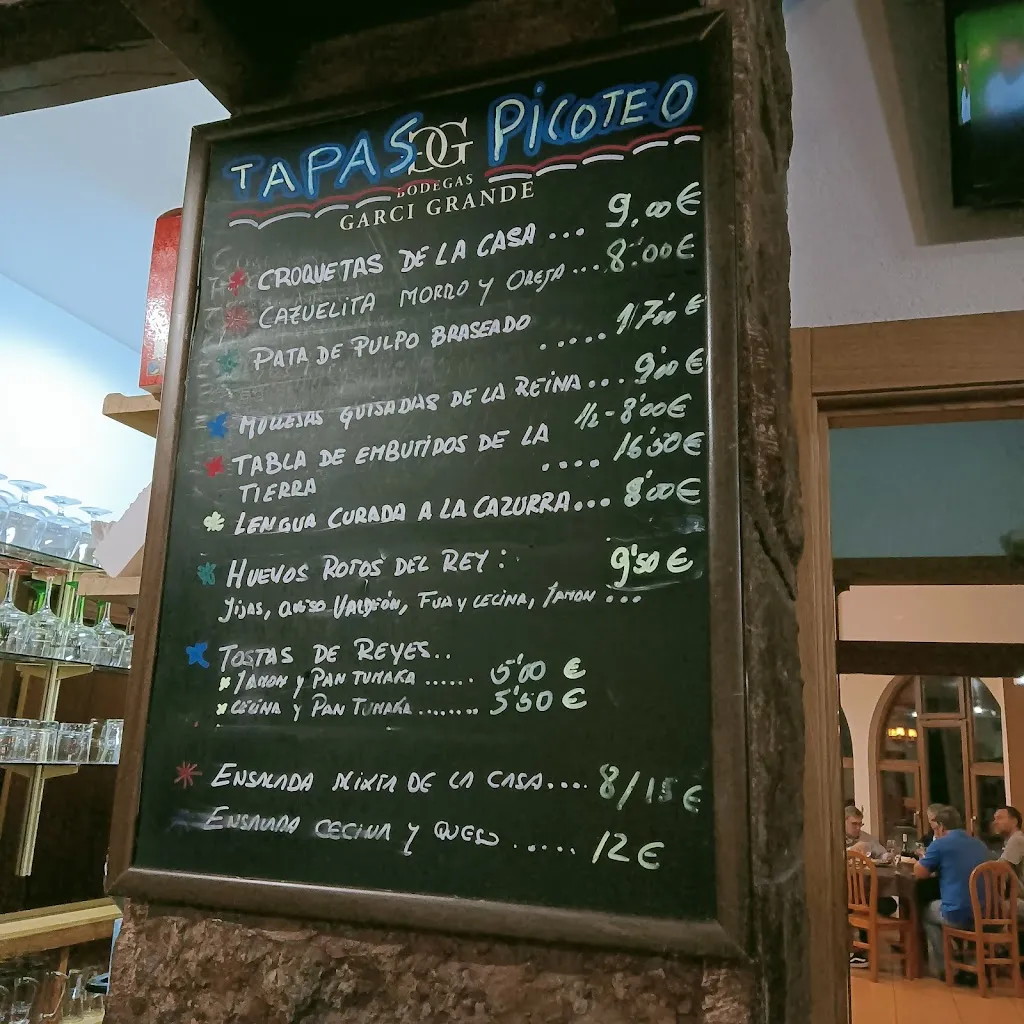 TAPAS GG PICOTEO
BODEGAS
GARCI GRANDE
CROQUETAS DE LA CASA ... 9,00 €
CAZUELITA MORRO Y OREJA ... 8'00 €
PATA DE PULPO BRASEADO ..... 17'00 €
MOLLEJAS GUISADAS DE LA REINA ... 9'00 €
1/2 - 8'00 €
TABLA DE EMBUTIDOS DE LA .... 16'50 €
TIERRA
LENGUA CURADA A LA CAZURRA ... 8'00 €
HUEVOS ROTOS DEL REY : 9'50 €
JIJAS, QUESO VALDEÓN, FUA Y CECINA, JAMON ...
TOSTAS DE REYES..
JAMON Y PAN TUMAKA ...... 5'00 €
CECINA Y PAN TUMAKA ........ 5'50 €
ENSALADA MIXTA DE LA CASA.... 8/15 €
ENSALADA CECINA Y QUESO ..... 12 €